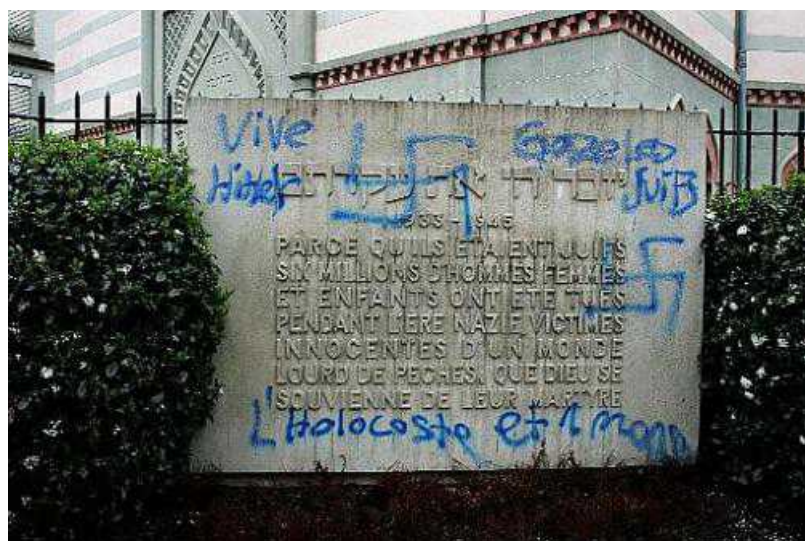 Vive
Hitler
את
1933 - 1945
PARCE QU'ILS ETAIENT JUIFS
SIX MILLIONS D'HOMMES FEMMES
ET ENFANTS ONT ETE TUES
PENDANT L'ERE NAZIE VICTIMES
INNOCENTES D'UN MONDE
LOURD DE PECHES, QUE DIEU SE
SOUVIENNE DE LEUR MARTYRE
L'Holocoste et 1